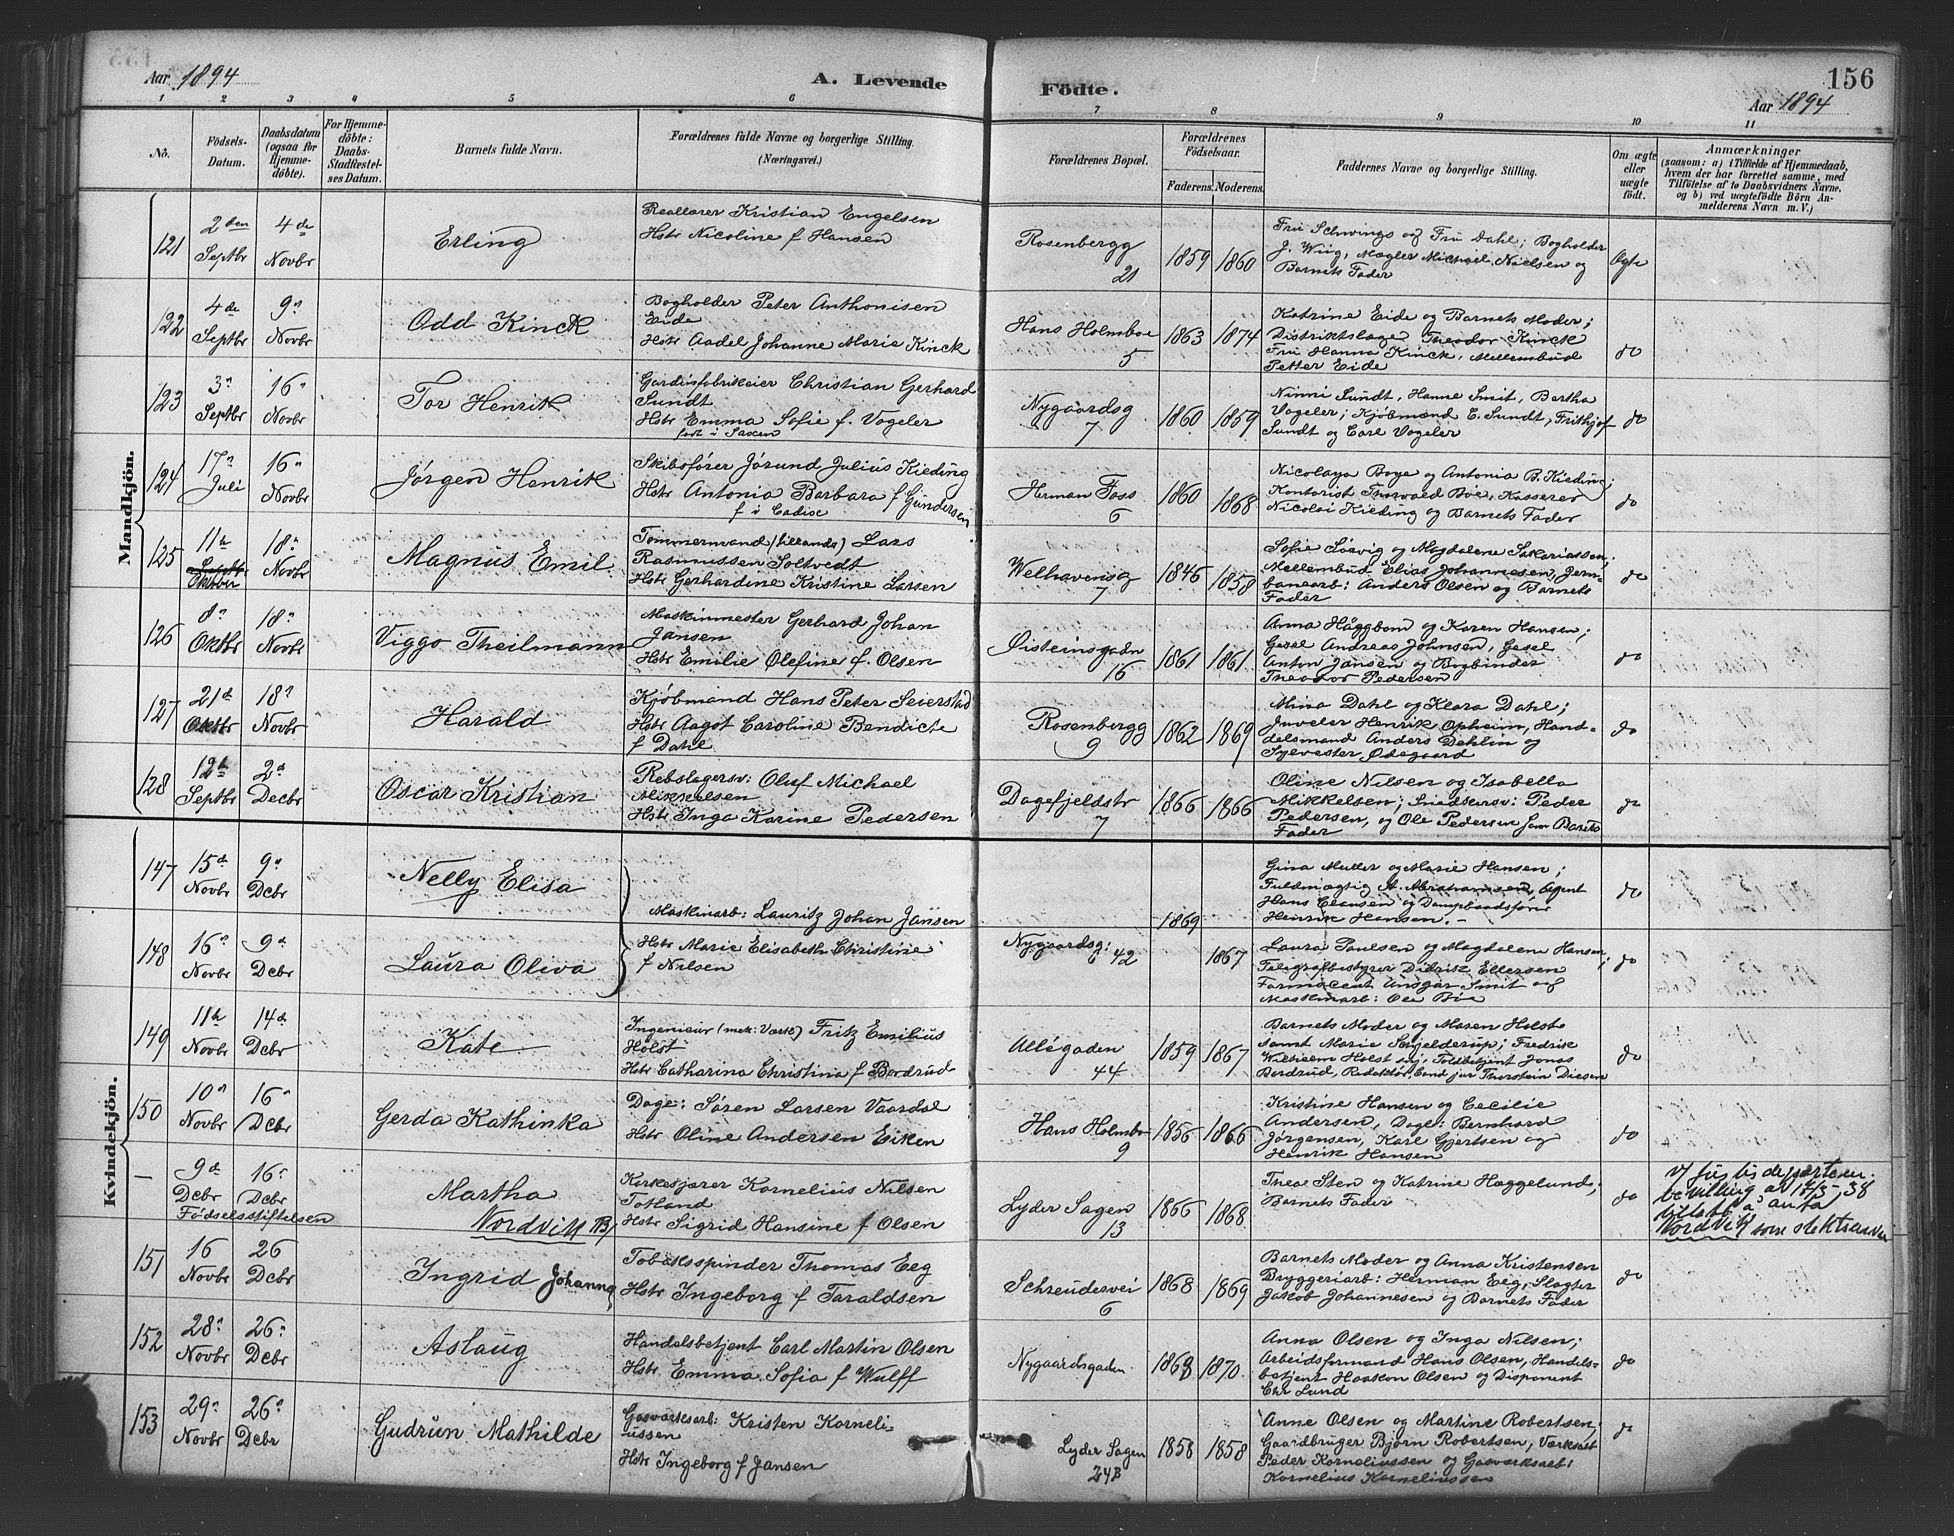 Aar 1894
A. Levende
Födte.
156
Aar 1894
1 2 3 4 5 6 7 8 9 10 11
No.
Födsels-
Datum.
Daabsdatum
(ogsaa for
Hjemme-
döbte).
For Hjemme-
döbte:
Daabs-
Stadfæstel-
ses Datum.
Barnets fulde Navn.
Forældrenes fulde Navne og borgerlige Stilling.
(Næringsvei.)
Forældrenes Bopæl.
Forældrenes
Födselsaar.
Faderens. Moderens.
Faddernes Navne og borgerlige Stilling.
Om ægte
eller
uægte
födt.
Anmærkninger
(saasom: a) i Tilfælde af Hjemmedaab,
hvem der har forrettet samme, med
Tilföielse af to Daabsvidners Navne,
og b) ved uægtefödte Börn An-
melderens Navn m. V.)
Mandkjön.
121
2den
Septbr
4de
Novbr
Erling
Reallærer Kristian Engelsen
Hstr Nicoline f Hansen
Rosenbergg
21
1859 1860
Fru Schwings og Fru Dahl; Bogholder
J. Wiig, Mægler Michael Nielsen og
Barnets Fader
Ægte
122
4de
Septbr
9n
Novbr
Odd Kinck
Bogholder Peter Anthonisen
Eide
Hstr Aadel Johanne Marie Kinck
Hans Holmboe
5
1863 1874
Katrine Eide og Barnets Moder;
Distriktslæge Theodor Kinck
Fru Hanna Kinck, Mellembud
Petter Eide
do
123
3n
Septbr
16n
Novbr
Tor Henrik
Gardinfabrikeier Christian Gerhard
Sundt
Hstr Emma Sofie f. Vogeler
født i Saxen
Nygaardsg
7
1860 1859
Ninni Sundt, Hanne Smit, Bertha
Vogeler; Kjøbmænd E. Sundt, Frithjof
Sundt og Carl Vogeler
do
124
17n
Juli
16n
Novbr
Jørgen Henrik
Skibsfører Jørund Julius Kieding
Hstr Antonia Barbara f Gundersen
f i Cadix
Herman Foss
6
1860 1868
Nicolaya Boye og Antonia B. Kieding;
Kontorist Thorvald Bøe, Kasserer
Nicolai Kieding og Barnets Fader
do
125
11te
Septbr
Oktbr
18n
Novbr
Magnus Emil
Tømmermand (tillands) Lars
Rasmussen Soltvedt
Hstr Gerhardine Kristine Larsen
Welhavensg
7
1846 1858
Sofie Sørvig og Magdalene Sakariassen;
Mellembud Elias Johannesen, Jern-
banearb: Anders Olsen og Barnets
Fader
do
126
8n
Oktbr
18n
Novbr
Viggo Theilmann
Maskinmester Gerhard Johan
Jansen
Hstr Emilie Olefine f. Olsen
Øisteinsgaden
16
1861 1861
Anna Häggbom og Karen Hansen;
Gesel Andreas Johnsen, Gesel
Anton Jansen og Bogbinder
Theodor Pedersen
do
127
21de
Oktbr
18n
Novbr
Harald
Kjøbmand Hans Peter Seierstad
Hstr Aagot Caroline Bendicte
f Dahl
Rosenbergg
9
1862 1869
Mina Dahl og Klara Dahl;
Juveler Henrik Opheim, Hand-
delsmand Anders Dehlin og
Sylvester Ødegaard
do
128
12te
Septbr
2d
Decbr
Oscar Kristian
Rebslagersv: Oluf Michael
Mikkelsen
Hstr Inga Karine Pedersen
Dagefjeldstr
7
1866 1866
Oline Nilsen og Isabella
Mikkelsen; Snedkersv: Peder
Pedersen, og Ole Pedersen Barnets
Fader
do
Kvindekjön.
147
15de
Novbr
9n
Dcbr
Nelly Elisa
Maskinarb: Lauritz Johan Jansen
1869
Gina Muller og Marie Hansen;
Fuldmægtig A. Abrahamsen, Agent
Hans Clausen og Dampbaadsfører
Henrik Hansen.
do
148
16n
Novbr
9d
Dcbr
Laura Oliva
Hstr Marie Elisabeth Christine
f Nilsen
Nygaardsg: 42
1867
Laura Paulsen og Magdalene Hansen;
Telegrafbestyrer Didrik Ellersen
Farmaceut Ansgar Smit og
Maskinarb: Ole Bøe
do
149
11te
Novbr
14de
Dcbr
Kate
Ingeniør (mek: Værk) Fritz Emilius
Holst
Hstr Catharina Christina f Bordrud
Allégaden
44
1859 1867
Barnets Moder og Maren Holst
samt Marie Schjelderup; Fredrik
Wilhelm Holst, Toldbetjent Jonas
Bordrud, Redaktør, Cand jur Thorstein Diesen
do
150
10n
Novbr
16n
Dcbr
Gerda Kathinka
Dagl: Søren Larsen Vaardal
Hstr Oline Andersen Eiken
Hans Holmbo
9
1856 1866
Kristine Hansen og Cecilie
Andersen, Dagl: Bernhard
Jørgensen, Karl Gjertsen og
Henrik Hansen
do
—
9de
Dcbr
16n
Dcbr
Födselsstiftelsen
Martha
Nordvik
Kirkesjarer Kornelius Nilsen
Totland
Hstr Sigrid Hansine f Olsen
Lyder Sagen
13
1866 1868
Thea Sten og Katrine Hæggelund;
Barnets Fader
do
v/ Justisdepartem.
bevilling av 14/3-38
tillatt å anta
Nordvik som slektsnavn
151
16
Novbr
26
Dcbr
Ingrid Johanna
Tobaksspinder Thomas Eeg
Hstr Ingeborg f Taraldsen
Schreudersvei
6
1868 1869
Barnets Moder og Anna Kristensen
Bryggeriarb: Herman Eeg, Slagter
Jakob Johannesen og Barnets Fader
do
152
28n
Novbr
26n
Dcbr
Aslaug
Handelsbetjent Carl Martin Olsen
Hstr Emma Sofia f Wulff
Nygaardsgaden
1868 1870
Anna Olsen og Inga Nilsen;
Arbeidsformand Hans Olsen, Handels-
betjent Haakon Olsen og Disponent
Chr Lund
do
153
29n
Novbr
26n
Dcbr
Gudrun Mathilde
Gasværksarb: Kristen Korneli-
ussen
Hstr Ingeborg f Jansen
Lyder Sagen
24B
1858 1858
Anne Olsen og Martine Robertsen;
Gaardbruger Bjørn Robertsen, Værksarb
Peder Korneliussen og Gasværksarb:
Kornelius Korneliussen
do